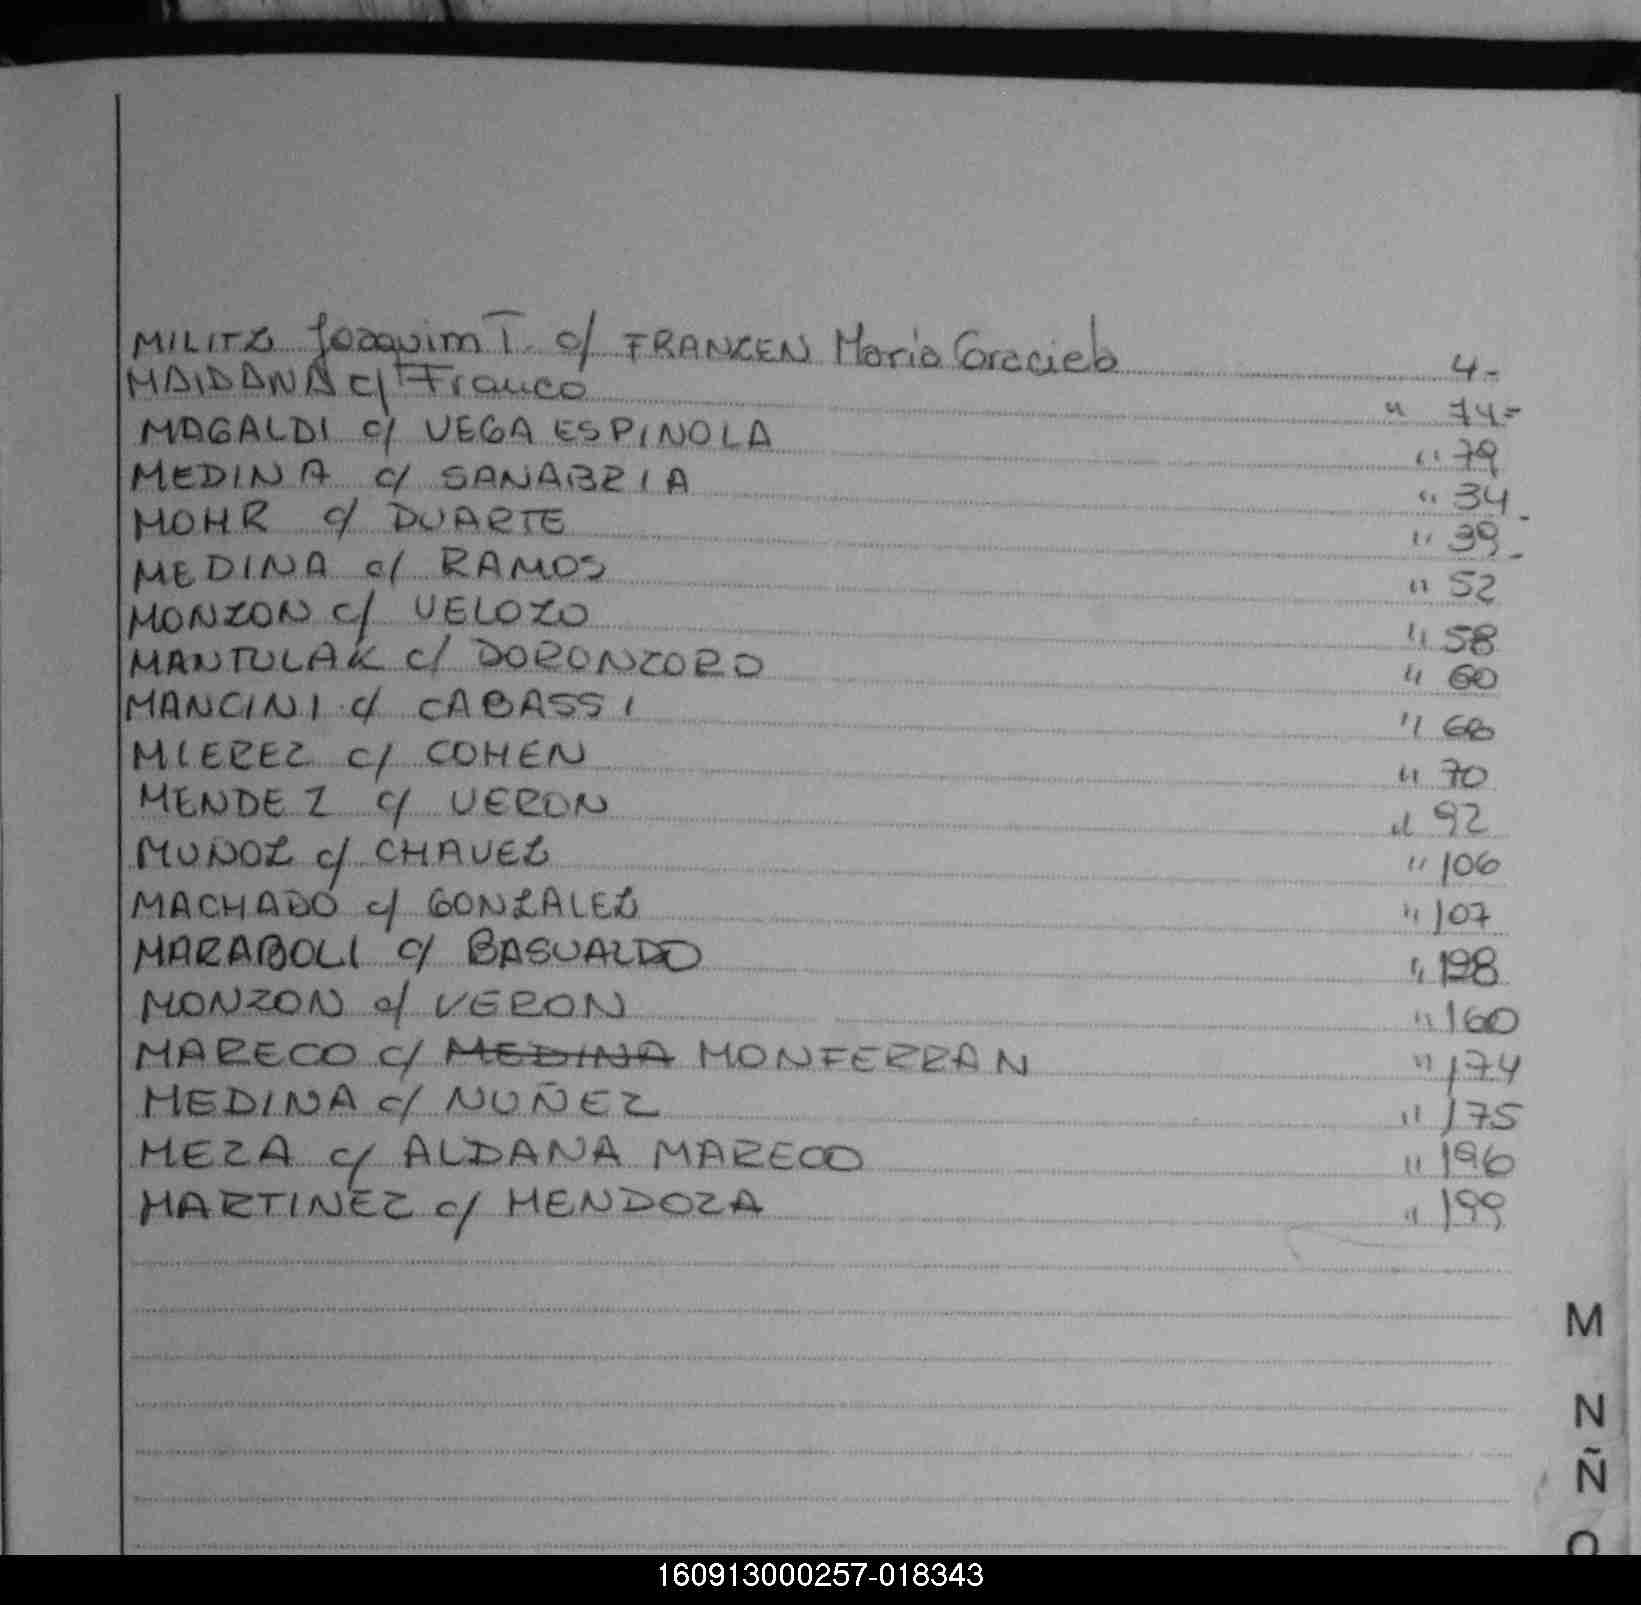 MILITZ Joaquim T. c/ FRANZEN Maria Graciela 4-
MAIDANA c/ Franco " 14=
MAGALDI c/ VEGA ESPINOLA " 79
MEDINA c/ SANABRIA " 34
MOHR c/ DUARTE " 39-
MEDINA c/ RAMOS " 52
MONZON c/ VELOZO " 58
MANTULAK c/ DORONZORO " 60
MANCINI c/ CABASSI "
MIEREZ c/ COHEN " 70
MENDEZ c/ VERON " 92
MUNOZ c/ CHAVEZ " 106
MACHADO c/ GONZALEZ " 107
MARABOLI c/ BASUALDO "
MONZON c/ VERON " 160
MARECO c/ MEDINA MONFERRAN " 174
MEDINA c/ NUÑEZ " 175
MEZA c/ ALDANA MARECO " 196
MARTINEZ c/ MENDOZA " 199
M
N
Ñ
O
160913000257-018343